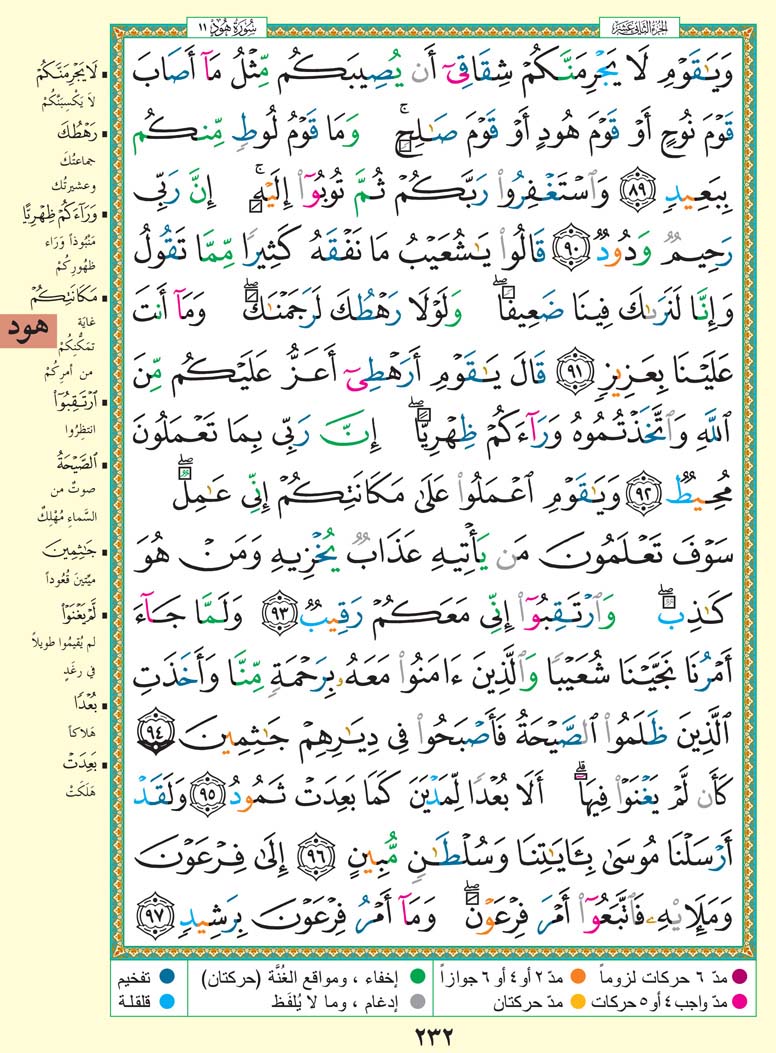 الجزء الثاني عشر
سُورَةُ هُودٍ ١١
وَيَـٰقَوْمِ لَا يَجْرِمَنَّكُمْ شِقَاقِىٓ أَن يُصِيبَكُم مِّثْلُ مَآ أَصَابَ
قَوْمَ نُوحٍ أَوْ قَوْمَ هُودٍ أَوْ قَوْمَ صَـٰلِحٍ ۚ وَمَا قَوْمُ لُوطٍ مِّنكُم
بِبَعِيدٍ ٨٩ وَٱسْتَغْفِرُوا۟ رَبَّكُمْ ثُمَّ تُوبُوٓا۟ إِلَيْهِ ۚ إِنَّ رَبِّى
رَحِيمٌ وَدُودٌ ٩٠ قَالُوا۟ يَـٰشُعَيْبُ مَا نَفْقَهُ كَثِيرًا مِّمَّا تَقُولُ
وَإِنَّا لَنَرَىٰكَ فِينَا ضَعِيفًا ۖ وَلَوْلَا رَهْطُكَ لَرَجَمْنَـٰكَ ۖ وَمَآ أَنتَ
عَلَيْنَا بِعَزِيزٍ ٩١ قَالَ يَـٰقَوْمِ أَرَهْطِىٓ أَعَزُّ عَلَيْكُم مِّنَ
ٱللَّهِ وَٱتَّخَذْتُمُوهُ وَرَآءَكُمْ ظِهْرِيًّا ۖ إِنَّ رَبِّى بِمَا تَعْمَلُونَ
مُحِيطٌ ٩٢ وَيَـٰقَوْمِ ٱعْمَلُوا۟ عَلَىٰ مَكَانَتِكُمْ إِنِّى عَـٰمِلٌ ۖ
سَوْفَ تَعْلَمُونَ مَن يَأْتِيهِ عَذَابٌ يُخْزِيهِ وَمَنْ هُوَ
كَـٰذِبٌ ۖ وَٱرْتَقِبُوٓا۟ إِنِّى مَعَكُمْ رَقِيبٌ ٩٣ وَلَمَّا جَآءَ
أَمْرُنَا نَجَّيْنَا شُعَيْبًا وَٱلَّذِينَ ءَامَنُوا۟ مَعَهُۥ بِرَحْمَةٍ مِّنَّا وَأَخَذَتِ
ٱلَّذِينَ ظَلَمُوا۟ ٱلصَّيْحَةُ فَأَصْبَحُوا۟ فِى دِيَـٰرِهِمْ جَـٰثِمِينَ ٩٤
كَأَن لَّمْ يَغْنَوْا۟ فِيهَآ ۗ أَلَا بُعْدًا لِّمَدْيَنَ كَمَا بَعِدَتْ ثَمُودُ ٩٥ وَلَقَدْ
أَرْسَلْنَا مُوسَىٰ بِـَٔايَـٰتِنَا وَسُلْطَـٰنٍ مُّبِينٍ ٩٦ إِلَىٰ فِرْعَوْنَ
وَمَلَإِي۟هِۦ فَٱتَّبَعُوٓا۟ أَمْرَ فِرْعَوْنَ ۖ وَمَآ أَمْرُ فِرْعَوْنَ بِرَشِيدٍ ٩٧
لَا يَجْرِمَنَّكُمْ
لَا يَكْسِبَنَّكُمْ
رَهْطُكَ
جماعتُكَ
وعشيرتُك
وَرَآءَكُمْ ظِهْرِيًّا
مَنْبُوذاً وَرَاءَ
ظهُورِكُمْ
مَكَانَتِكُمْ
غاية
تمَكُّنِكُمْ
من أمرِكُمْ
ٱرْتَقِبُوٓا۟
انتظرُوا
ٱلصَّيْحَةُ
صوتٌ من
السَّماء مُهْلِكٌ
جَـٰثِمِينَ
ميِّتينَ قُعُوداً
لَّمْ يَغْنَوْا۟
لم يُقِيمُوا طويلاً
في رغَدٍ
بُعْدًا
هَلاكاً
بَعِدَتْ
هَلَكَتْ
هود
مدّ ٦ حركات لزوماً
مدّ ٢ أو ٤ أو ٦ جوازاً
إخفاء ، ومواقع الغُنَّة (حركتان)
تفخيم
مدّ واجب ٤ أو ٥ حركات
مدّ حركتان
إدغام ، وما لا يُلفَظ
قلقلة
٢٣٢